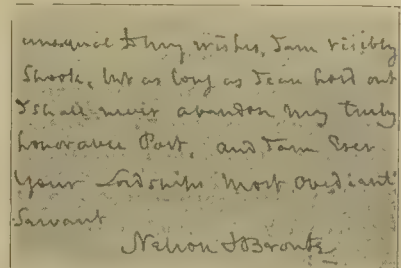 unequal to my wishes, I am visibly
Shook, but as long as I can hold out
I shall never abandon my truly
honorable Post, and I am Ever
Your Lordships most obedient
Servant
Nelson & Bronte